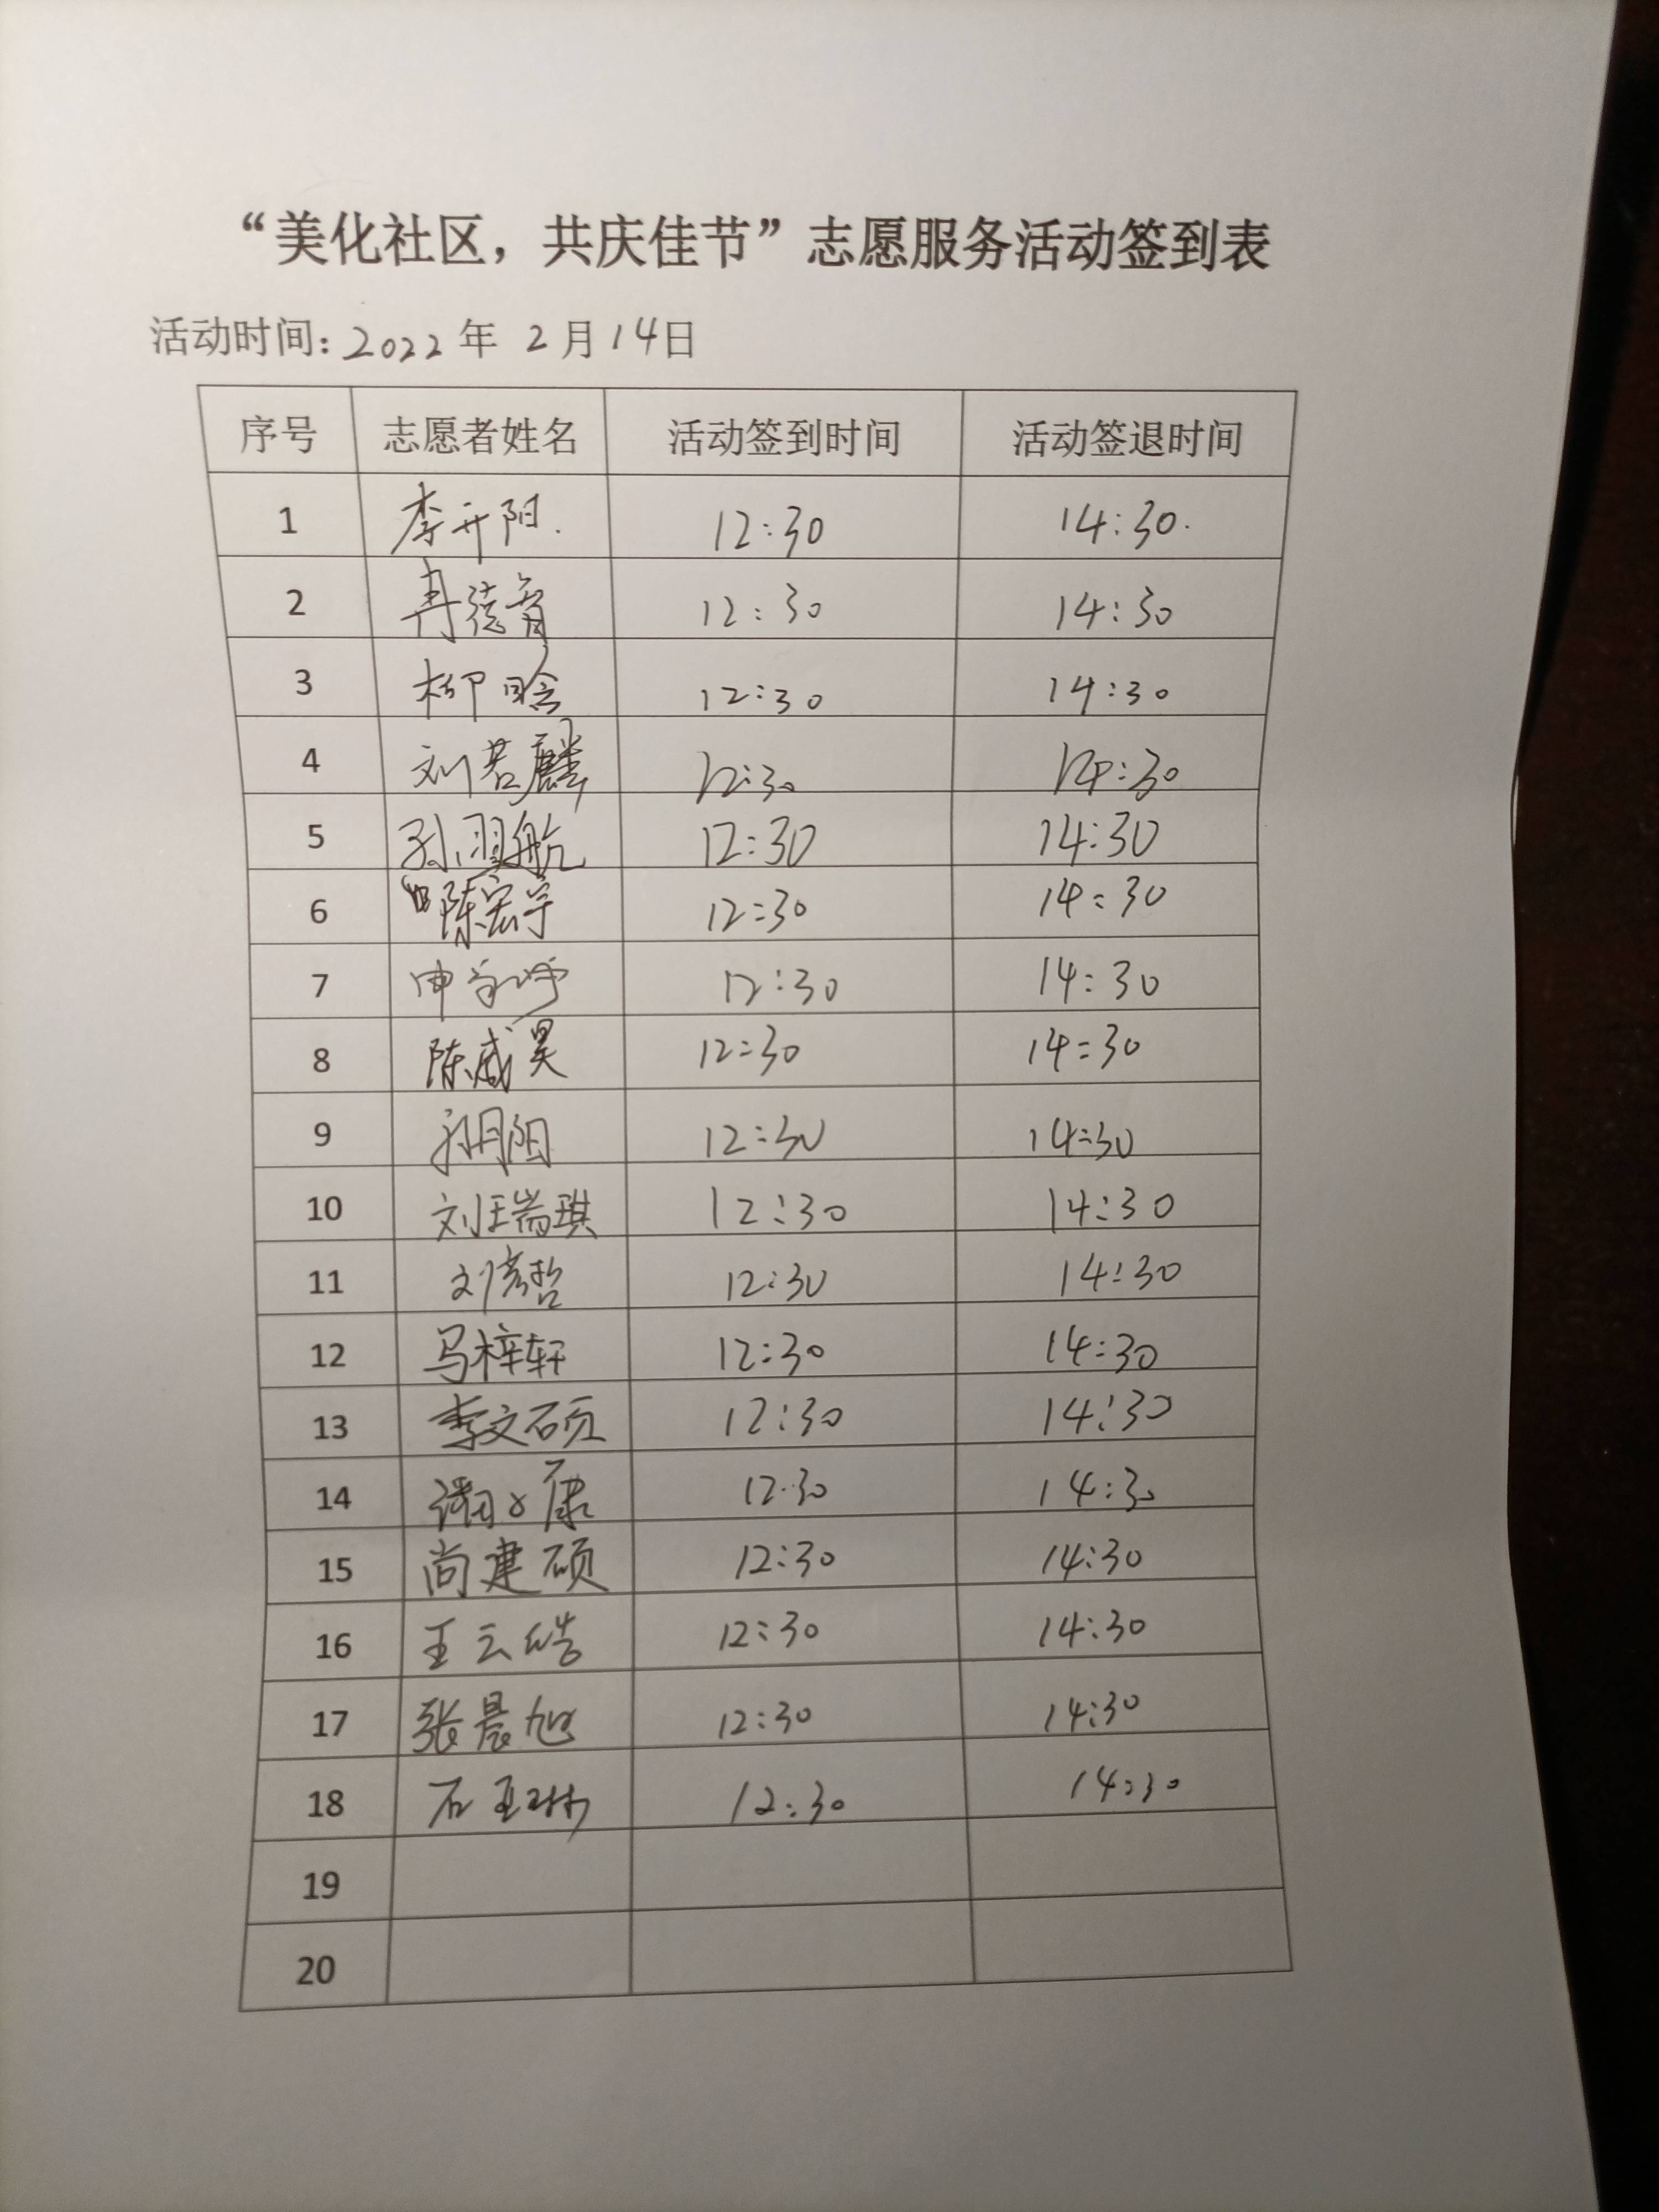 “美化社区，共庆佳节”志愿服务活动签到表
活动时间：2022年 2月14日
序号 志愿者姓名 活动签到时间 活动签退时间
1 李开阳. 12:30 14:30.
2 冉德育 12:30 14:30
3 柳晗 12:30 14:30
4 刘若麟 12:30 14:30
5 孙羽航 12:30 14:30
6 陈宏宇 12:30 14:30
7 申 12:30 14:30
8 陈威昊 12:30 14:30
9 阳 12:30 14:30
10 刘王瑞琪 12:30 14:30
11 刘彦哲 12:30 14:30
12 马梓轩 12:30 14:30
13 李文硕 12:30 14:30
14 康 12:30 14:30
15 尚建硕 12:30 14:30
16 王云皓 12:30 14:30
17 张晨旭 12:30 14:30
18 石玉琳 12:30 14:30
19
20